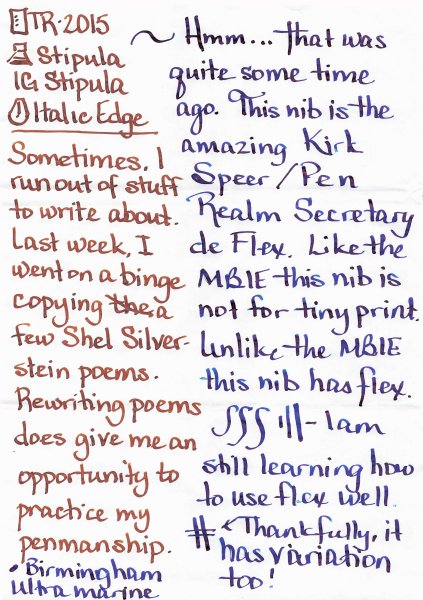 TR-2015
Stipula
IG Stipula
Italic Edge
Sometimes, I
run out of stuff
to write about.
Last week, I
went on a binge
copying the a
few Shel Silver-
stein poems.
Rewriting poems
does give me an
opportunity to
practice my
penmanship.
• Birmingham
Ultramarine
~ Hmm... that was
quite some time
ago. This nib is the
amazing Kirk
Speer/Pen
Realm Secretary
de Flex. Like the
MBIE this nib is
not for tiny print.
Unlike the MBIE
this nib has flex.
∫∫∫ ||| - I am
still learning how
to use flex well.
# ← Thankfully, it
has variation
too!